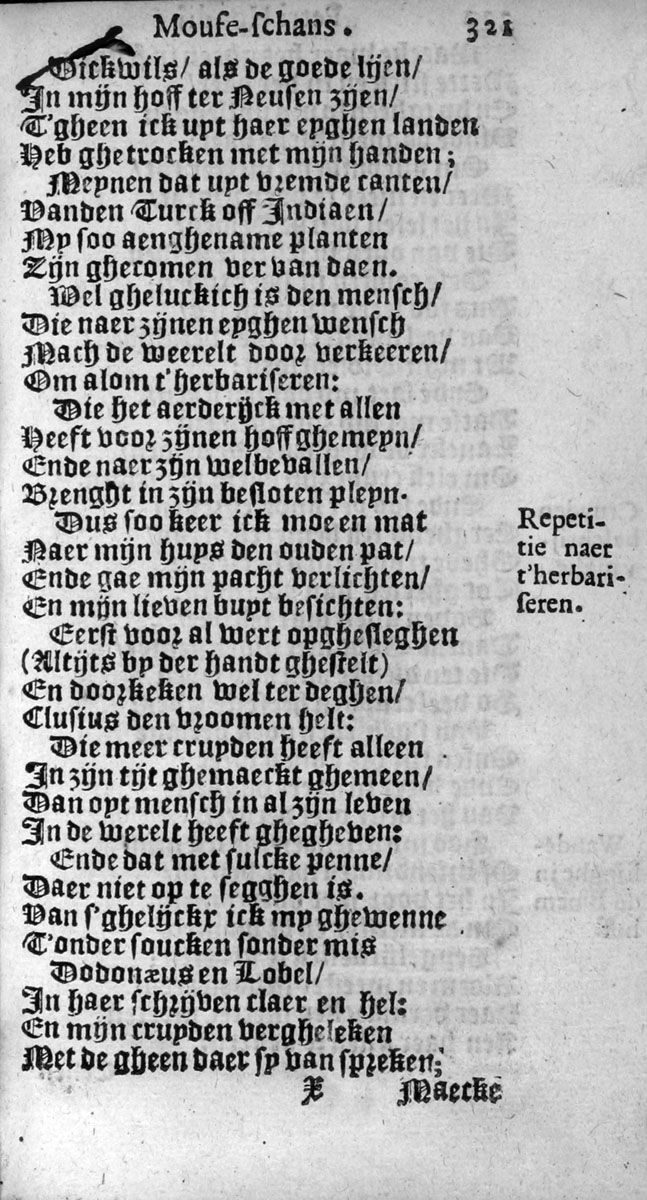 Moufe-schans. 321
Dickwils/ als de goede lijen/
In mijn hoff ter Neusen zijen/
T'gheen ick uyt haer eyghen landen
Heb ghetrocken met mijn handen;
Meynen dat uyt vremde canten/
Vanden Turck off Indiaen/
My soo aenghename planten
Zijn ghecomen ver van daen.
Wel gheluckich is den mensch/
Die naer zijnen eyghen wensch
Mach de weerelt door verkeeren/
Om alom t'herbariseren:
Die het aerderijck met allen
Heeft voor zijnen hoff ghemeyn/
Ende naer zijn welbevallen/
Brenght in zijn besloten pleyn.
Dus soo keer ick moe en mat
Naer mijn huys den ouden pat/
Ende gae mijn pacht verlichten/
En mijn lieven buyt besichten:
Eerst voor al wert opghesleghen
(Altijts by der handt ghestelt)
En doorkeken wel ter deghen/
Clusius den vroomen helt:
Die meer cruyden heeft alleen
In zijn tijt ghemaeckt ghemeen/
Dan oyt mensch in al zijn leven
In de werelt heeft ghegheven:
Ende dat met sulcke penne/
Daer niet op te segghen is.
Van s'ghelijckx ick my ghewenne
T'onder soucken sonder mis
Dodonæus en Lobel/
In haer schrijven claer en hel:
En mijn cruyden vergheleken
Met de gheen daer sy van spreken;
X Maecke
Repeti-
tie naer
t'herbari-
seren.